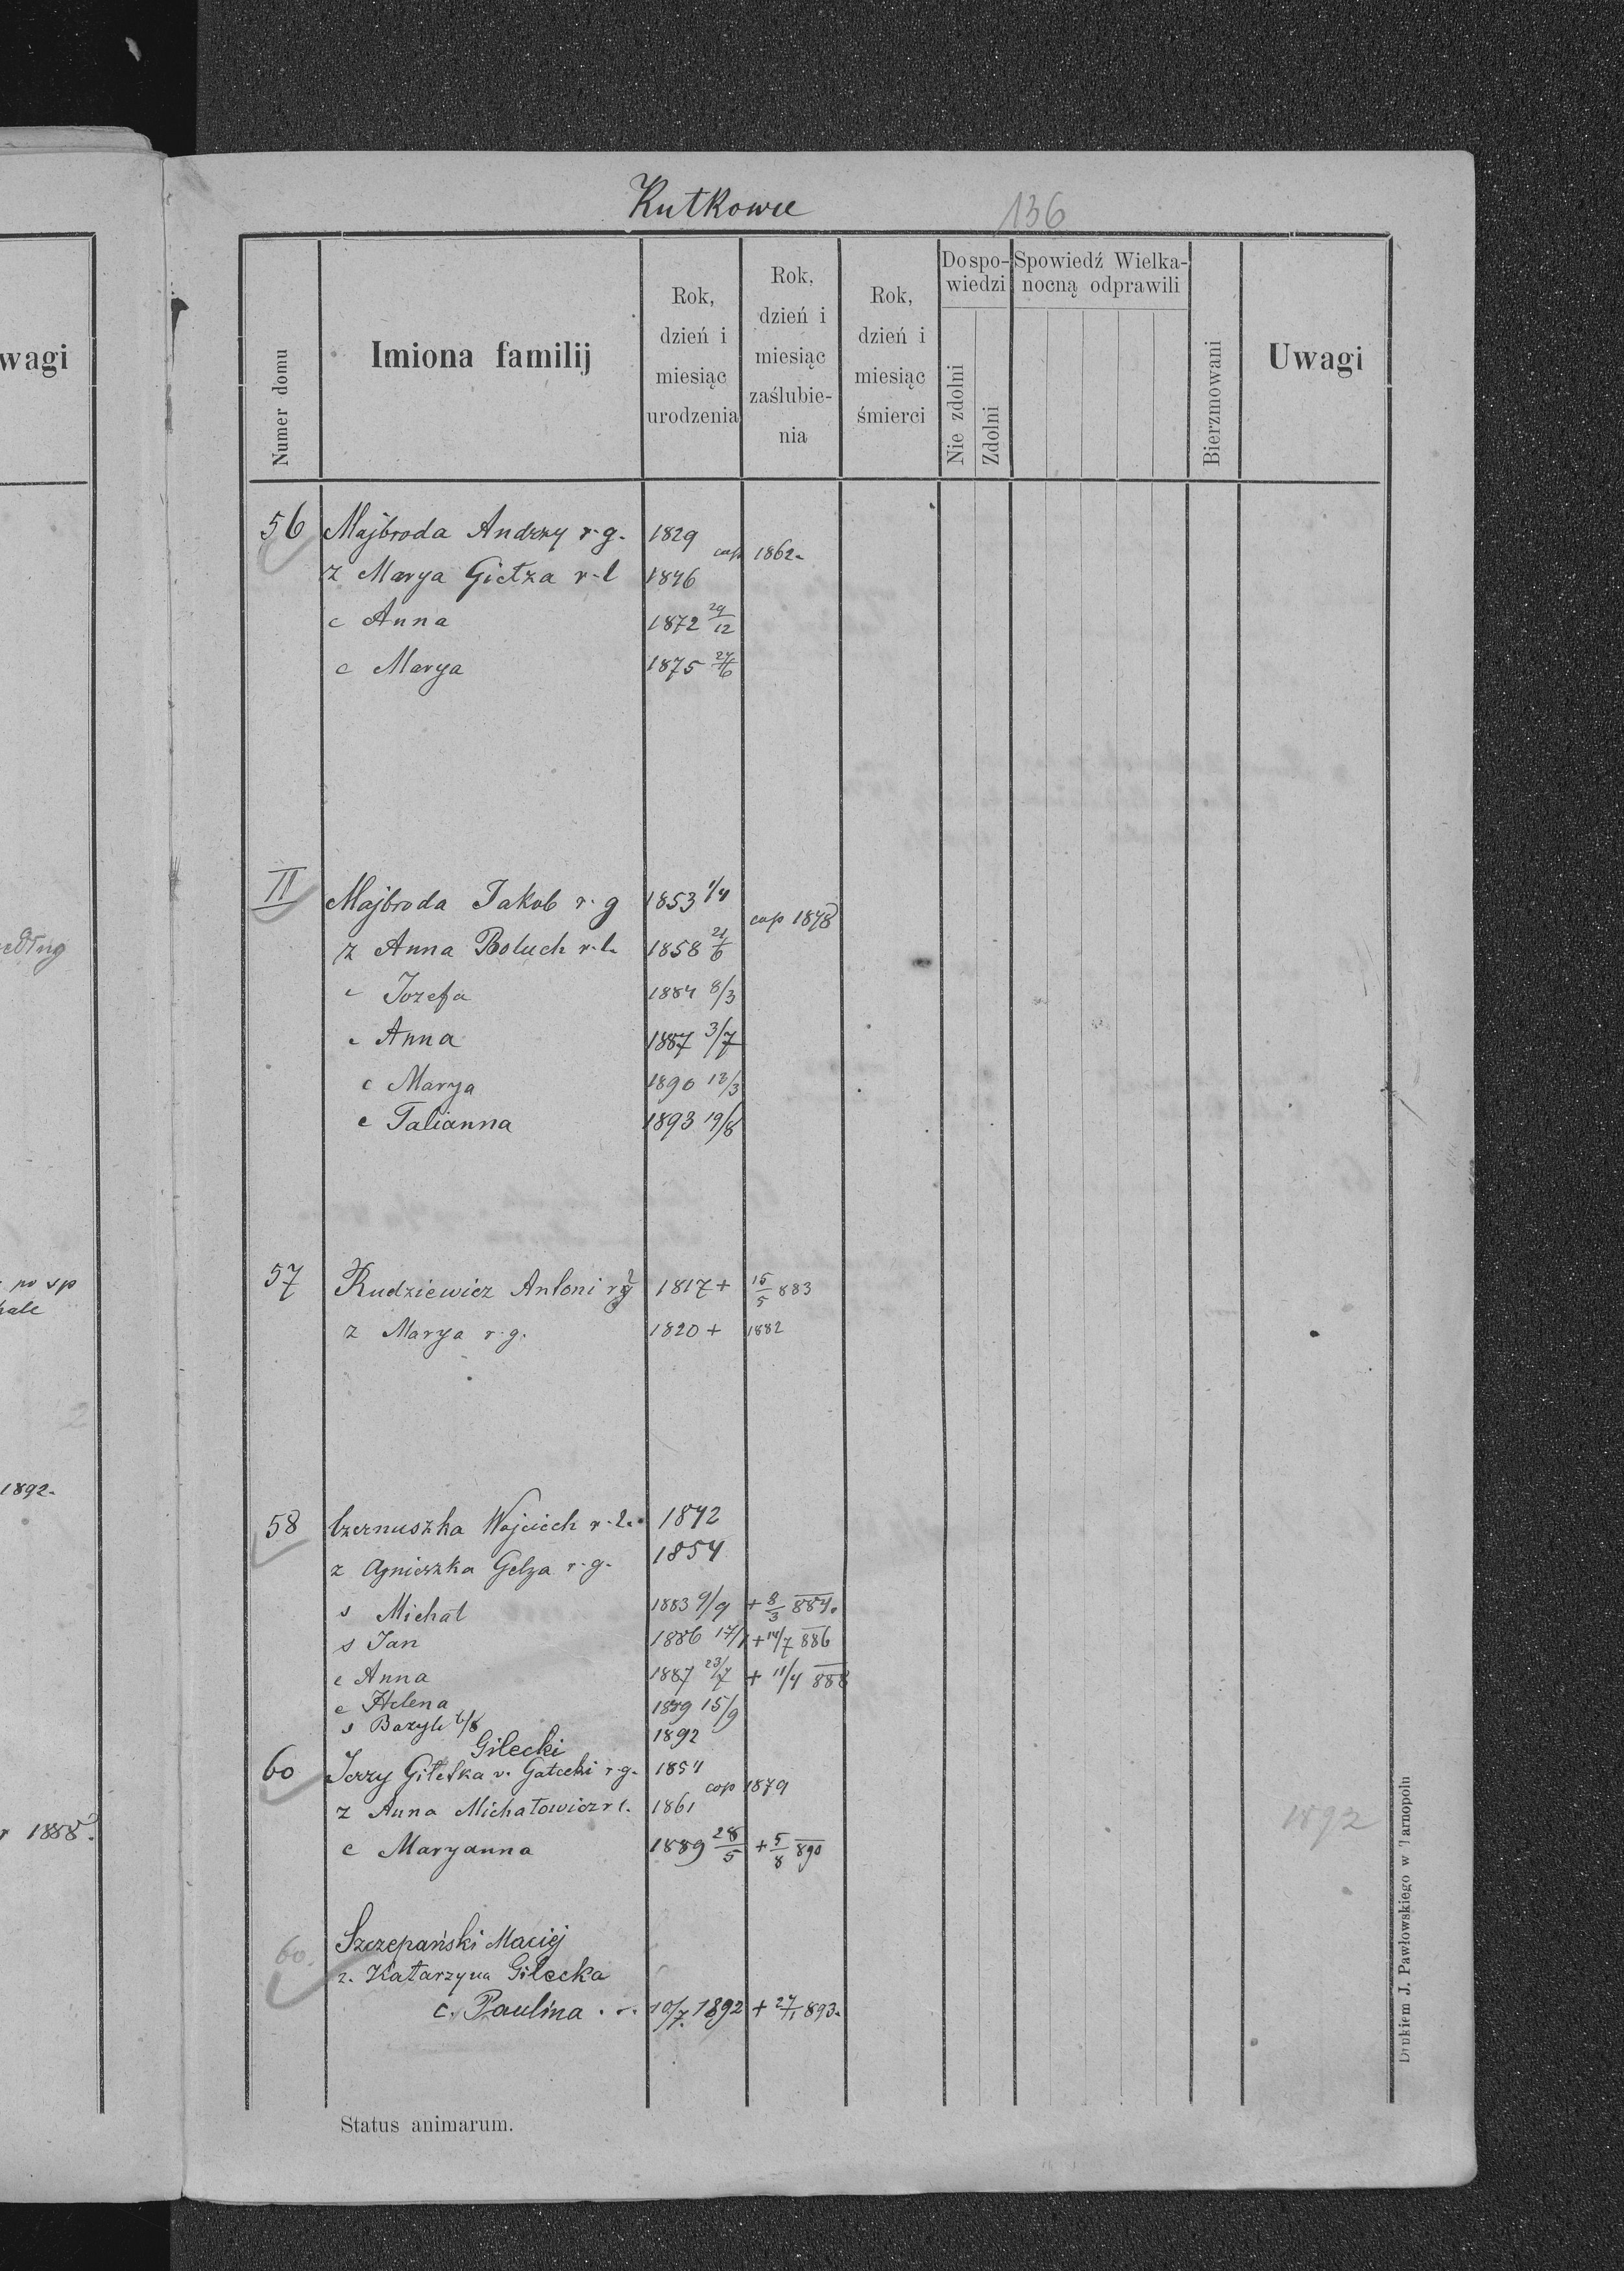 Kutkowce
136
wagi
Numer domu
Imiona familij
Rok, dzień i miesiąc urodzenia
Rok, dzień i miesiąc zaślubie-nia
Rok, dzień i miesiąc śmierci
Do spo-wiedzi
Nie zdolni
Zdolni
Spowiedź Wielka-nocną odprawili
Bierzmowani
Uwagi
56 Majbroda Andrzy r.g. 1829
cop 1862.
z Marya Gietza r.l 1846
c Anna 1872 29/12
c Marya 1875 24/6
II Majbroda Jakob r.g 1853 1/4
cop 1878
z Anna Boluch r.l. 1858 21/6
c Jozefa 1884 8/3
c Anna 1887 3/7
c Marya 1890 12/3
c Talianna 1893 19/8
57 Rudziewicz Antoni 1817 + 15/5 883
z Marya r.g. 1820 + 1882
58 Czernuszka Wojciech r.l. 1842
z Agnieszka Gelza r.g. 1854
s Michał 1883 9/9 + 8/3 884.
s Jan 1886 17/1 + 14/7 886
c Anna 1887 23/7 + 11/4 888
c Helena 1889 15/9
s Bazyli 6/8 1892
Gilecki
60 Jerzy Giletka v. Gatecki r.g. 1854
cop 1879
z Anna Michałowicz r l. 1861
1892
c Maryanna 1889 28/5 + 5/8 890
60. Szczepański Maciej
z. Katarzyna Gilecka
c. Paulina . . 10/7. 1892 + 27/1 893.
Status animarum.
Drukiem J. Pawłowskiego w Tarnopolu
1892.
1888.